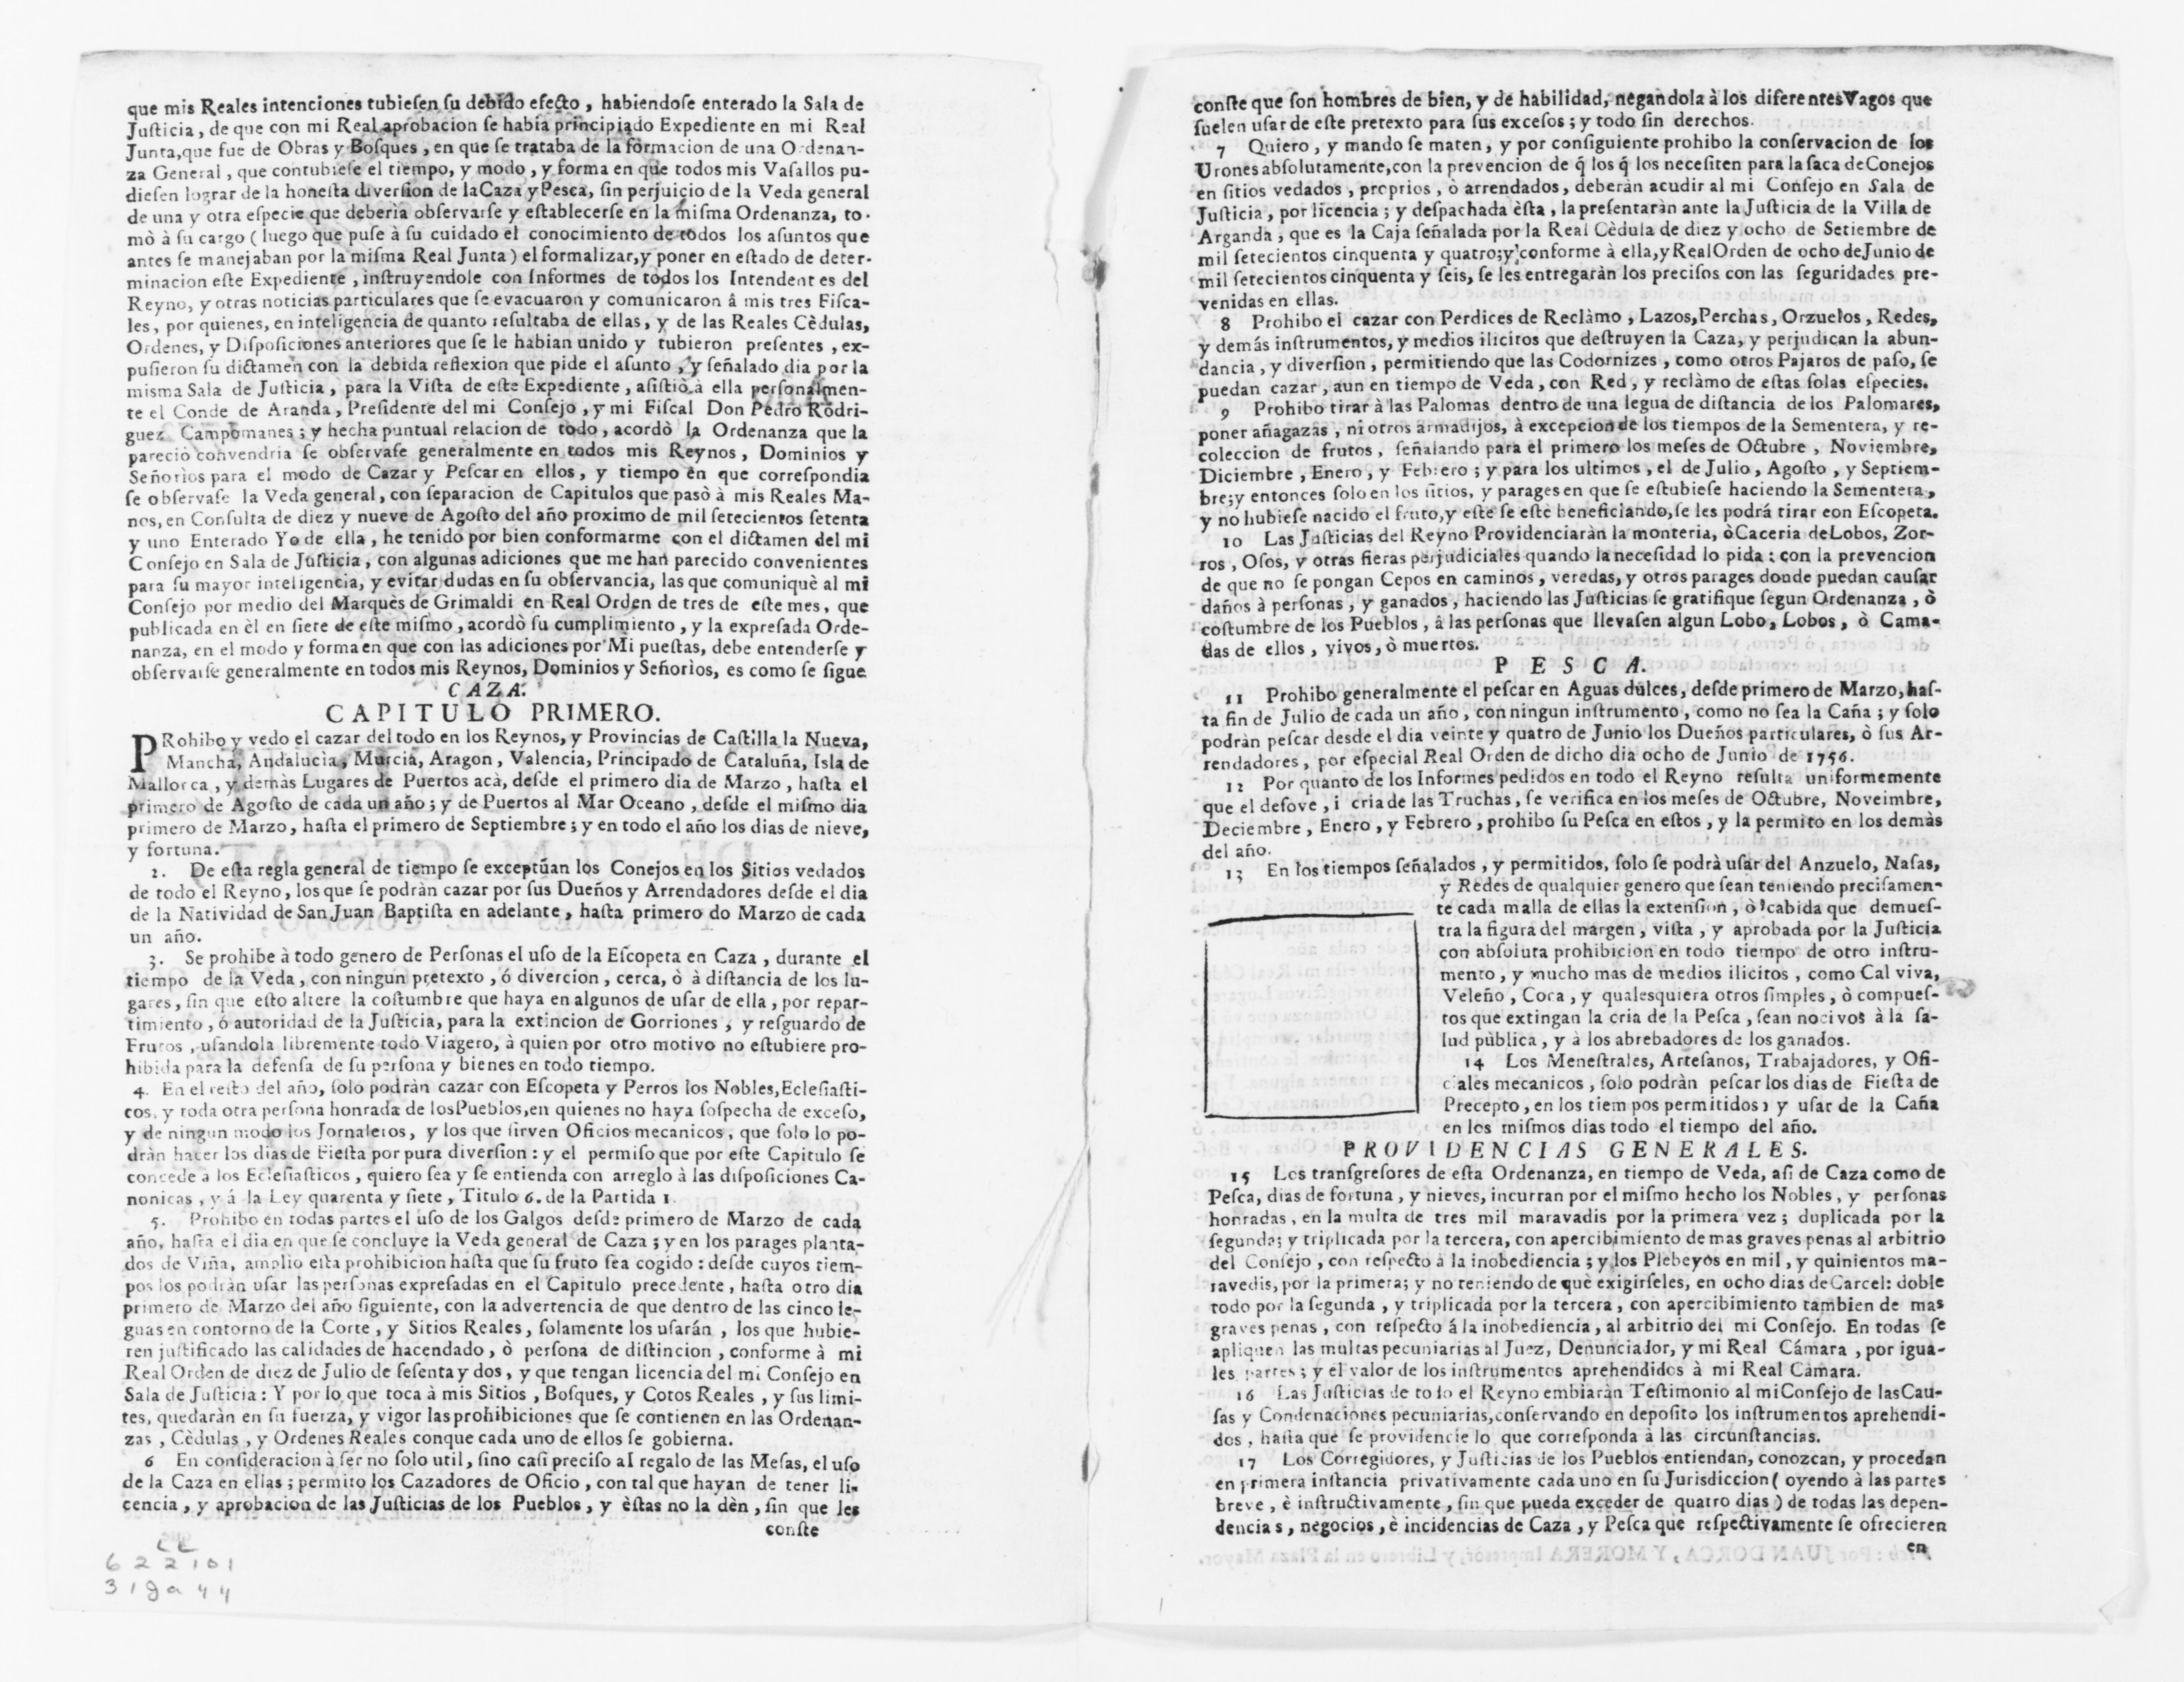 que mis Reales intenciones tubieſen ſu debido efecto, habiendoſe enterado la Sala de
Juſticia, de que con mi Real aprobacion ſe habia principiado Expediente en mi Real
Junta, que fue de Obras y Boſques, en que ſe trataba de la formacion de una Ordenan-
za General, que contubieſe el tiempo, y modo, y forma en que todos mis Vaſallos pu-
dieſen lograr de la honeſta diverſion de la Caza y Peſca, ſin perjuicio de la Veda general
de una y otra eſpecie que deberia obſervarſe y eſtablecerſe en la miſma Ordenanza, to-
mò à ſu cargo (luego que puſe à ſu cuidado el conocimiento de todos los aſuntos que
antes ſe manejaban por la miſma Real Junta) el formalizar, y poner en eſtado de deter-
minacion eſte Expediente, inſtruyendole con Informes de todos los Intendentes del
Reyno, y otras noticias particulares que ſe evacuaron y comunicaron â mis tres Fiſca-
les, por quienes, en inteligencia de quanto reſultaba de ellas, y de las Reales Cèdulas,
Ordenes, y Diſpoſiciones anteriores que ſe le habian unido y tubieron preſentes, ex-
puſieron ſu dictamen con la debida reflexion que pide el aſunto, y ſeñalado dia por la
misma Sala de Juſticia, para la Viſta de eſte Expediente, aſiſtiò à ella perſonalmen-
te el Conde de Aranda, Preſidente del mi Conſejo, y mi Fiſcal Don Pedro Rodri-
guez Campomanes; y hecha puntual relacion de todo, acordò la Ordenanza que la
pareciò convendria ſe obſervaſe generalmente en todos mis Reynos, Dominios y
Señorìos para el modo de Cazar y Peſcar en ellos, y tiempo en que correſpondia
ſe obſervaſe la Veda general, con ſeparacion de Capitulos que pasò à mis Reales Ma-
nos, en Conſulta de diez y nueve de Agoſto del año proximo de mil ſetecientos ſetenta
y uno Enterado Yo de ella, he tenido por bien conformarme con el dictamen del mi
Conſejo en Sala de Juſticia, con algunas adiciones que me han parecido convenientes
para ſu mayor inteligencia, y evitar dudas en ſu obſervancia, las que comuniquè al mi
Conſejo por medio del Marquès de Grimaldi en Real Orden de tres de eſte mes, que
publicada en èl en ſiete de eſte miſmo, acordò ſu cumplimiento, y la expreſada Orde-
nanza, en el modo y forma en que con las adiciones por Mi pueſtas, debe entenderſe y
obſervarſe generalmente en todos mis Reynos, Dominios y Señorìos, es como ſe ſigue
CAZA.
CAPITULO PRIMERO.
PRohibo y vedo el cazar del todo en los Reynos, y Provincias de Caſtilla la Nueva,
Mancha, Andalucia, Murcia, Aragon, Valencia, Principado de Cataluña, Isla de
Mallorca, y demàs Lugares de Puertos acà, deſde el primero dia de Marzo, haſta el
primero de Agoſto de cada un año; y de Puertos al Mar Oceano, deſde el miſmo dia
primero de Marzo, haſta el primero de Septiembre; y en todo el año los dias de nieve,
y fortuna.
2. De eſta regla general de tiempo ſe exceptúan los Conejos en los Sitios vedados
de todo el Reyno, los que ſe podràn cazar por ſus Dueños y Arrendadores deſde el dia
de la Natividad de San Juan Baptiſta en adelante, haſta primero do Marzo de cada
un año.
3. Se prohibe à todo genero de Perſonas el uſo de la Eſcopeta en Caza, durante el
tiempo de la Veda, con ningun pretexto, ó divercion, cerca, ò à diſtancia de los lu-
gares, ſin que eſto altere la coſtumbre que haya en algunos de uſar de ella, por repar-
timiento, ó autoridad de la Juſticia, para la extincion de Gorriones, y reſguardo de
Frutos, uſandola libremente todo Viagero, à quien por otro motivo no eſtubiere pro-
hibida para la defenſa de ſu perſona y bienes en todo tiempo.
4. En el reſto del año, ſolo podràn cazar con Eſcopeta y Perros los Nobles, Ecleſiaſti-
cos, y toda otra perſona honrada de los Pueblos, en quienes no haya ſoſpecha de exceſo,
y de ningun modo los Jornaleros, y los que ſirven Oficios mecanicos, que ſolo lo po-
dràn hacer los dias de Fieſta por pura diverſion: y el permiſo que por eſte Capitulo ſe
concede a los Ecleſiaſticos, quiero ſea y ſe entienda con arreglo à las diſpoſiciones Ca-
nonicas, y á la Ley quarenta y ſiete, Titulo 6. de la Partida 1.
5. Prohibo en todas partes el uſo de los Galgos deſde primero de Marzo de cada
año, haſta el dia en que ſe concluye la Veda general de Caza; y en los parages planta-
dos de Viña, amplio eſta prohibicion haſta que ſu fruto ſea cogido: deſde cuyos tiem-
pos los podràn uſar las perſonas expreſadas en el Capitulo precedente, haſta otro dia
primero de Marzo del año ſiguiente, con la advertencia de que dentro de las cinco le-
guas en contorno de la Corte, y Sitios Reales, ſolamente los uſarán, los que hubie-
ren juſtificado las calidades de hacendado, ò perſona de diſtincion, conforme à mi
Real Orden de diez de Julio de ſeſenta y dos, y que tengan licencia del mi Conſejo en
Sala de Juſticia: Y por lo que toca à mis Sitios, Boſques, y Cotos Reales, y ſus limi-
tes, quedaràn en ſu fuerza, y vigor las prohibiciones que ſe contienen en las Ordenan-
zas, Cèdulas, y Ordenes Reales conque cada uno de ellos ſe gobierna.
6 En conſideracion à ſer no ſolo util, ſino caſi preciſo al regalo de las Meſas, el uſo
de la Caza en ellas; permito los Cazadores de Oficio, con tal que hayan de tener li-
cencia, y aprobacion de las Juſticias de los Pueblos, y èſtas no la dèn, ſin que les
conſte
622101
31ga44
conſte que ſon hombres de bien, y de habilidad, negandola à los diferentes Vagos que
ſuelen uſar de eſte pretexto para ſus exceſos; y todo ſin derechos.
7 Quiero, y mando ſe maten, y por conſiguiente prohibo la conſervacion de los
Urones abſolutamente, con la prevencion de q̃ los q̃ los neceſiten para la ſaca de Conejos
en ſitios vedados, proprios, ò arrendados, deberàn acudir al mi Conſejo en Sala de
Juſticia, por licencia; y deſpachada èſta, la preſentaràn ante la Juſticia de la Villa de
Arganda, que es la Caja ſeñalada por la Real Cèdula de diez y ocho de Setiembre de
mil ſetecientos cinquenta y quatro; y conforme à ella, y Real Orden de ocho de Junio de
mil ſetecientos cinquenta y ſeis, ſe les entregaràn los preciſos con las ſeguridades pre-
venidas en ellas.
8 Prohibo el cazar con Perdices de Reclàmo, Lazos, Perchas, Orzuelos, Redes,
y demás inſtrumentos, y medios ilicitos que deſtruyen la Caza, y perjudican la abun-
dancia, y diverſion, permitiendo que las Codornizes, como otros Pajaros de paſo, ſe
puedan cazar, aun en tiempo de Veda, con Red, y reclàmo de eſtas ſolas eſpecies.
9 Prohibo tirar à las Palomas dentro de una legua de diſtancia de los Palomares,
poner añagazas, ni otros armadijos, à excepcion de los tiempos de la Sementera, y re-
coleccion de frutos, ſeñalando para el primero los meſes de Octubre, Noviembre,
Diciembre, Enero, y Febrero; y para los ultimos, el de Julio, Agoſto, y Septiem-
bre; y entonces ſolo en los ſitios, y parages en que ſe eſtubieſe haciendo la Sementera,
y no hubieſe nacido el fruto, y eſte ſe eſtè beneficiando, ſe les podrá tirar con Eſcopeta.
10 Las Juſticias del Reyno Providenciaràn la monteria, ò Caceria de Lobos, Zor-
ros, Oſos, y otras fieras perjudiciales quando la neceſidad lo pida: con la prevencion
de que no ſe pongan Cepos en caminos, veredas, y otros parages donde puedan cauſar
daños à perſonas, y ganados, haciendo las Juſticias ſe gratifique ſegun Ordenanza, ò
coſtumbre de los Pueblos, â las perſonas que llevaſen algun Lobo, Lobos, ò Cama-
das de ellos, vivos, ò muertos.
PESCA.
11 Prohibo generalmente el peſcar en Aguas dulces, deſde primero de Marzo, haſ-
ta fin de Julio de cada un año, con ningun inſtrumento, como no ſea la Caña; y ſolo
podràn peſcar desde el dia veinte y quatro de Junio los Dueños particulares, ò ſus Ar-
rendadores, por eſpecial Real Orden de dicho dia ocho de Junio de 1756.
12 Por quanto de los Informes pedidos en todo el Reyno reſulta uniformemente
que el deſove, i cria de las Truchas, ſe verifica en los meſes de Octubre, Noveimbre,
Deciembre, Enero, y Febrero, prohibo ſu Peſca en eſtos, y la permito en los demàs
del año.
13 En los tiempos ſeñalados, y permitidos, ſolo ſe podrà uſar del Anzuelo, Naſas,
y Redes de qualquier genero que ſean teniendo preciſamen-
te cada malla de ellas la extenſion, ò cabida que demueſ-
tra la figura del margen, viſta, y aprobada por la Juſticia
con abſoluta prohibicion en todo tiempo de otro inſtru-
mento, y mucho mas de medios ilicitos, como Cal viva,
Veleño, Coca, y qualesquiera otros ſimples, ò compueſ-
tos que extingan la cria de la Peſca, ſean nocivos à la ſa-
lud pùblica, y à los abrebadores de los ganados.
14 Los Meneſtrales, Arteſanos, Trabajadores, y Ofi-
ciales mecanicos, ſolo podràn peſcar los dias de Fieſta de
Precepto, en los tiempos permitidos, y uſar de la Caña
en los miſmos dias todo el tiempo del año.
PROVIDENCIAS GENERALES.
15 Los tranſgreſores de eſta Ordenanza, en tiempo de Veda, aſi de Caza como de
Peſca, dias de fortuna, y nieves, incurran por el miſmo hecho los Nobles, y perſonas
honradas, en la multa de tres mil maravadis por la primera vez; duplicada por la
ſegunda; y triplicada por la tercera, con apercibimiento de mas graves penas al arbitrio
del Conſejo, con reſpecto à la inobediencia; y los Plebeyos en mil, y quinientos ma-
ravedis, por la primera; y no teniendo de què exigirſeles, en ocho dias de Carcel: doble
todo por la ſegunda, y triplicada por la tercera, con apercibimiento tambien de mas
graves penas, con reſpecto á la inobediencia, al arbitrio del mi Conſejo. En todas ſe
apliquen las multas pecuniarias al Juez, Denunciador, y mi Real Cámara, por igua-
les partes; y el valor de los inſtrumentos aprehendidos à mi Real Càmara.
16 Las Juſticias de todo el Reyno embiaràn Teſtimonio al mi Conſejo de las Cau-
ſas y Condenaciones pecuniarias, conſervando en depoſito los inſtrumentos aprehendi-
dos, haſta que ſe providencie lo que correſponda à las circunſtancias.
17 Los Corregidores, y Juſticias de los Pueblos entiendan, conozcan, y procedan
en primera inſtancia privativamente cada uno en ſu Jurisdiccion (oyendo à las partes
breve, è inſtructivamente, ſin que pueda exceder de quatro dias) de todas las depen-
dencias, negocios, è incidencias de Caza, y Peſca que reſpectivamente ſe ofrecieren
en